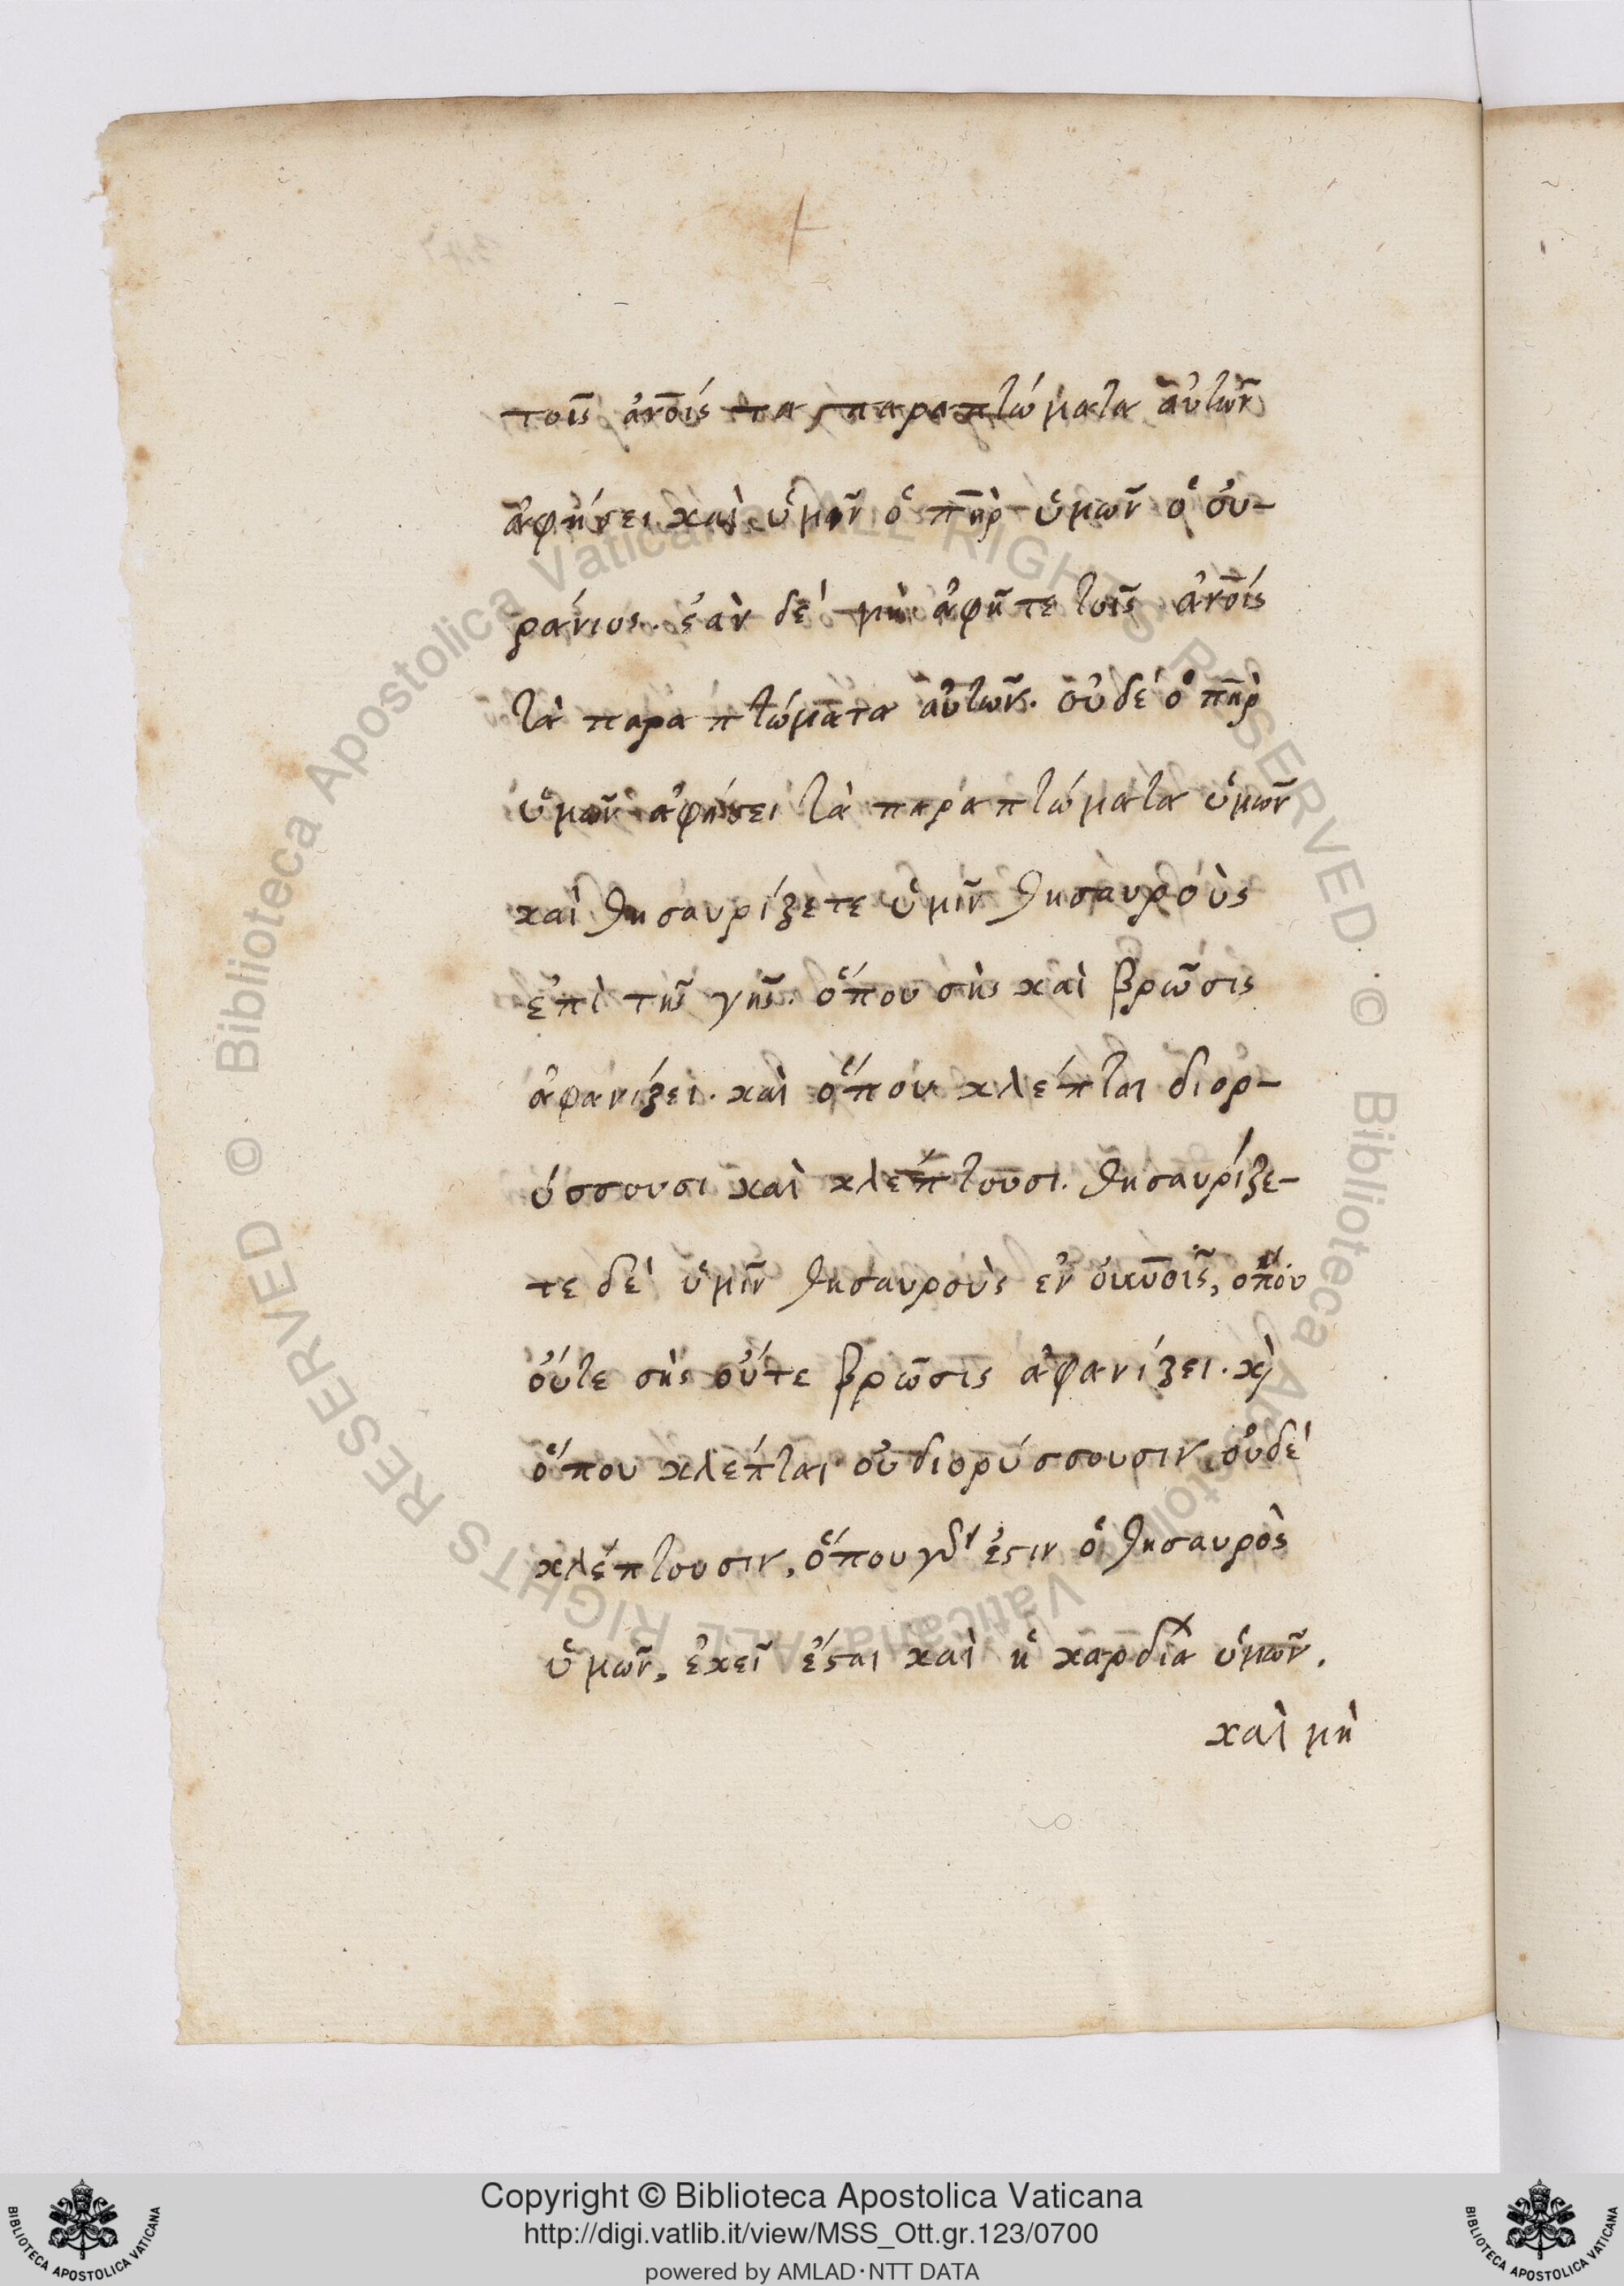 τοῖς ἀν̅οις τα παραπτώματα αὐτῶν
ἀφήσει καὶ ὑμῶν ὁ π̅ηρ ὑμῶν ὁ οὐ-
ράνιος. ἐὰν δέ μὴ ἀφῆτε τοῖς ἀν̅οις
τὰ παραπτώματα αὐτῶν. οὐδέ ὁ π̅ηρ
ὑμῶν ἀφήσει τὰ παραπτώματα ὑμῶν
καὶ θησαυρίζετε ὑμῖν θησαυροὺς
ἐπὶ τῆς γῆς. ὅπου σὴς καὶ βρῶσις
ἀφανίζει. καὶ ὅπου κλέπται διορ-
ύσσουσι καὶ κλέπτουσι. θησαυρίζε-
τε δέ ὑμῖν θησαυροὺς ἐν , ὅπου
οὔτε σὴς οὔτε βρῶσις ἀφανίζει. κὶ
ὅπου κλέπται οὐ διορύσσουσιν οὐδέ
κλέπτουσιν, ὅπου γὰρ ἐϛιν ὁ θησαυρὸς
ὑμῶν, ἐκεῖ ἔϛαι καὶ ἡ καρδία ὑμῶν.
καὶ μὴ
Copyright © Biblioteca Apostolica Vaticana
http://digi.vatlib.it/view/MSS_Ott.gr.123/0700
powered by AMLAD·NTT DATA
BIBLIOTECA APOSTOLICA VATICANA
BIBLIOTECA APOSTOLICA VATICANA
© Biblioteca Apostolica Vaticana ALL RIGHTS RESERVED · © Biblioteca Apostolica Vaticana ALL RIGHTS RESERVED